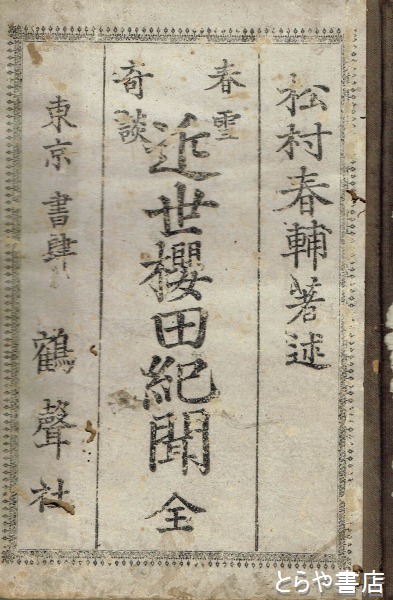 松村春輔著述
春雪奇談
近世櫻田紀聞 全
東京 書肆 鶴聲社
とらや書店